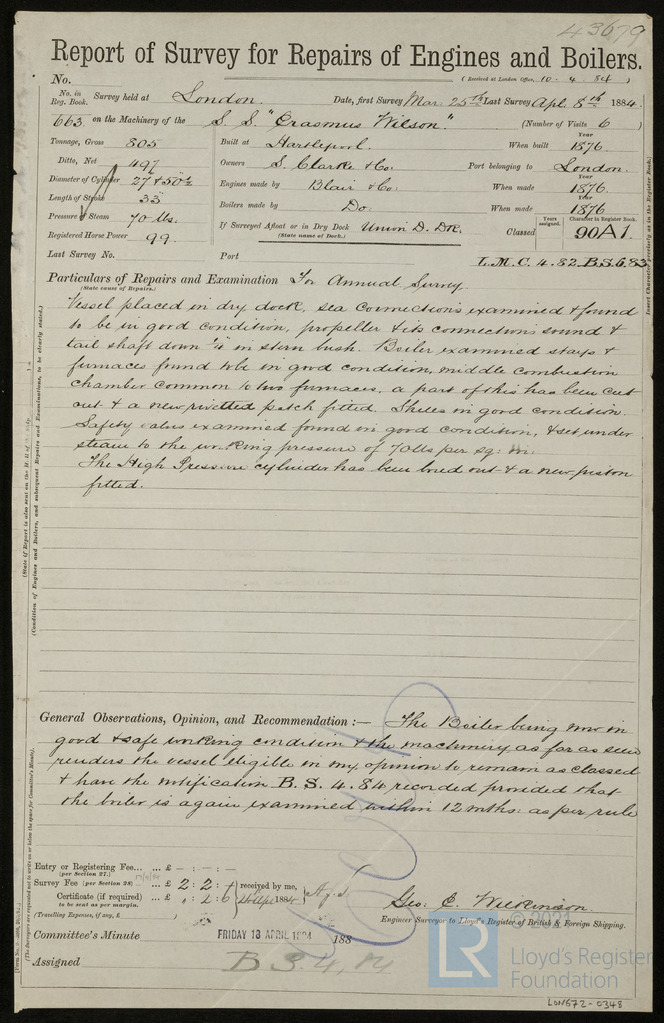 43679
Report of Survey for Repairs of Engines and Boilers.
No.
(Received at London Office, 10.4.84)
No. in Reg. Book. Survey held at London. Date, first Survey Mar: 25th Last Survey Apl. 8th 1884
663 on the Machinery of the S. S. "Erasmus Wilson." (Number of Visits 6)
Tonnage, Gross 805 Built at Hartlepool. When built Year 1876.
Ditto, Net 497 Owners S. Clarke & Co: Port belonging to London.
Diameter of Cylinder 27 & 50½ Engines made by Blair & Co: When made Year 1876.
Length of Stroke 33" Boilers made by Do. When made Year 1876
Pressure of Steam 70 lbs. If Surveyed Afloat or in Dry Dock Union D. Dk. Classed Years assigned. Character in Register Book. 90A1.
(State name of Dock.)
Registered Horse Power 99.
Last Survey No. Port L.M.C. 4.82. B.S. 6.83
Particulars of Repairs and Examination For Annual Survey.
(State cause of Repairs.)
Vessel placed in dry dock, sea connections examined & found
to be in good condition, propeller & its connections sound &
tail shaft down ¼" in stern bush. Boiler examined stays &
furnaces found to be in good condition, middle combustion
chamber common to two furnaces, a part of this has been cut
out & a new rivetted patch fitted. Shells in good condition.
Safety valves examined found in good condition, & set under
steam to the working pressure of 70 lbs per sq: in:
The High Pressure cylinder has been bored out & a new piston
fitted.
General Observations, Opinion, and Recommendation :— The Boiler being now in
good & safe working condition & the machinery as far as seen
renders the vessel eligible in my opinion to remain as classed
& have the notification B.S. 4.84 recorded provided that
the boiler is again examined within 12 mths: as per rule
Entry or Registering Fee... ... £ - : - : -
(per Section 27.)
Survey Fee (per Section 28) ... ... £ 2 : 2 : received by me,
Certificate (if required) ... £ " : 2 : 6 188
to be sent as per margin.
(Travelling Expenses, if any, £ )
Geo: C. Wilkinson.
Engineer Surveyor to Lloyd's Register of British & Foreign Shipping.
Committee's Minute FRIDAY 18 APRIL 1884 188
Assigned B S. 4, 84
© 2021
LR Lloyd's Register
Foundation
LON672-0348